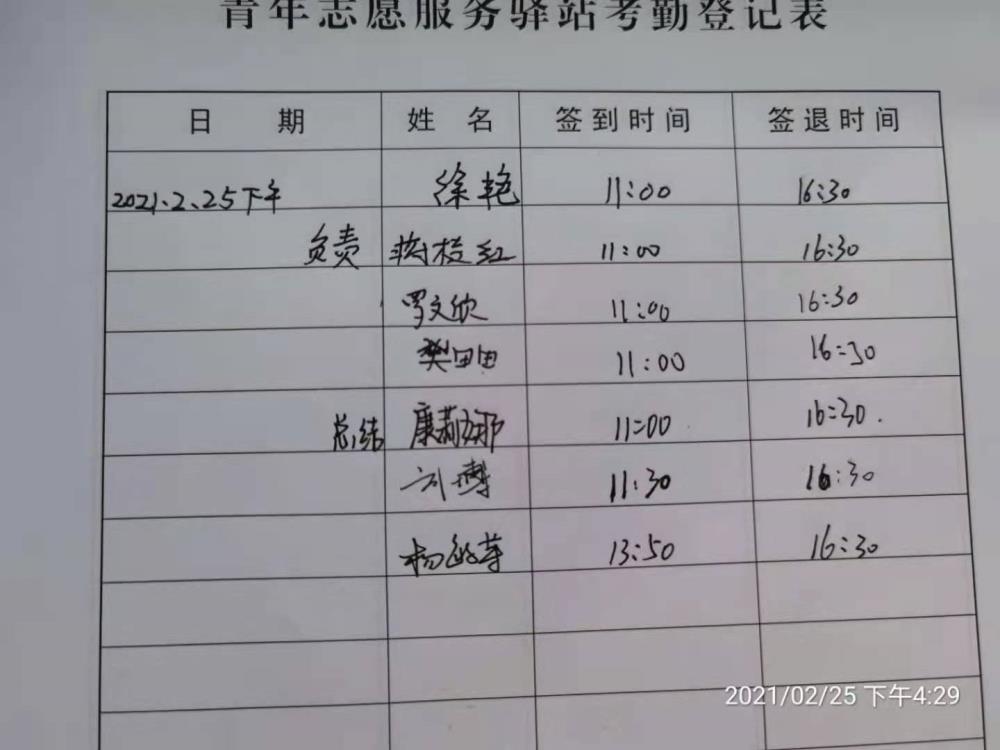 青年志愿服务驿站考勤登记表
日 期 姓 名 签到时间 签退时间
2021.2.25下午 徐艳 11:00 16:30
负责 枝红 11:00 16:30
罗文欣 11:00 16:30
樊田田 11:00 16:30
总结 康莉娜 11:00 16:30.
刘 11:30 16:30
杨 13:50 16:30
2021/02/25 下午4:29